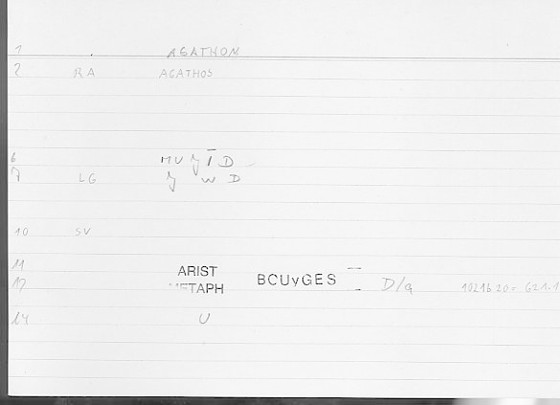 1 AGATHON
2 RA AGATHOS
6
7 LG
10 SV
11 ARIST
METAPH BCUyGES D/a 1021b20 = 621.1
14 U